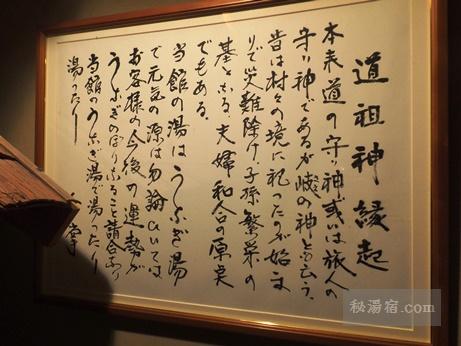 道祖神縁起
本来道の守り神或いは旅人の
守り神であるが岐の神とも云う、
昔は村々の境に祀ったのが始ま
りで災難除け、子孫繁栄の
基となる、夫婦和合の原点
でもある。
当館の湯はうふぎ湯
で元気の源は勿論ひいては
お客様の今後の運勢が
うふぎのぼりになること請合あり
当館のうふぎ湯で湯ったり
湯ったり
秘湯宿.com